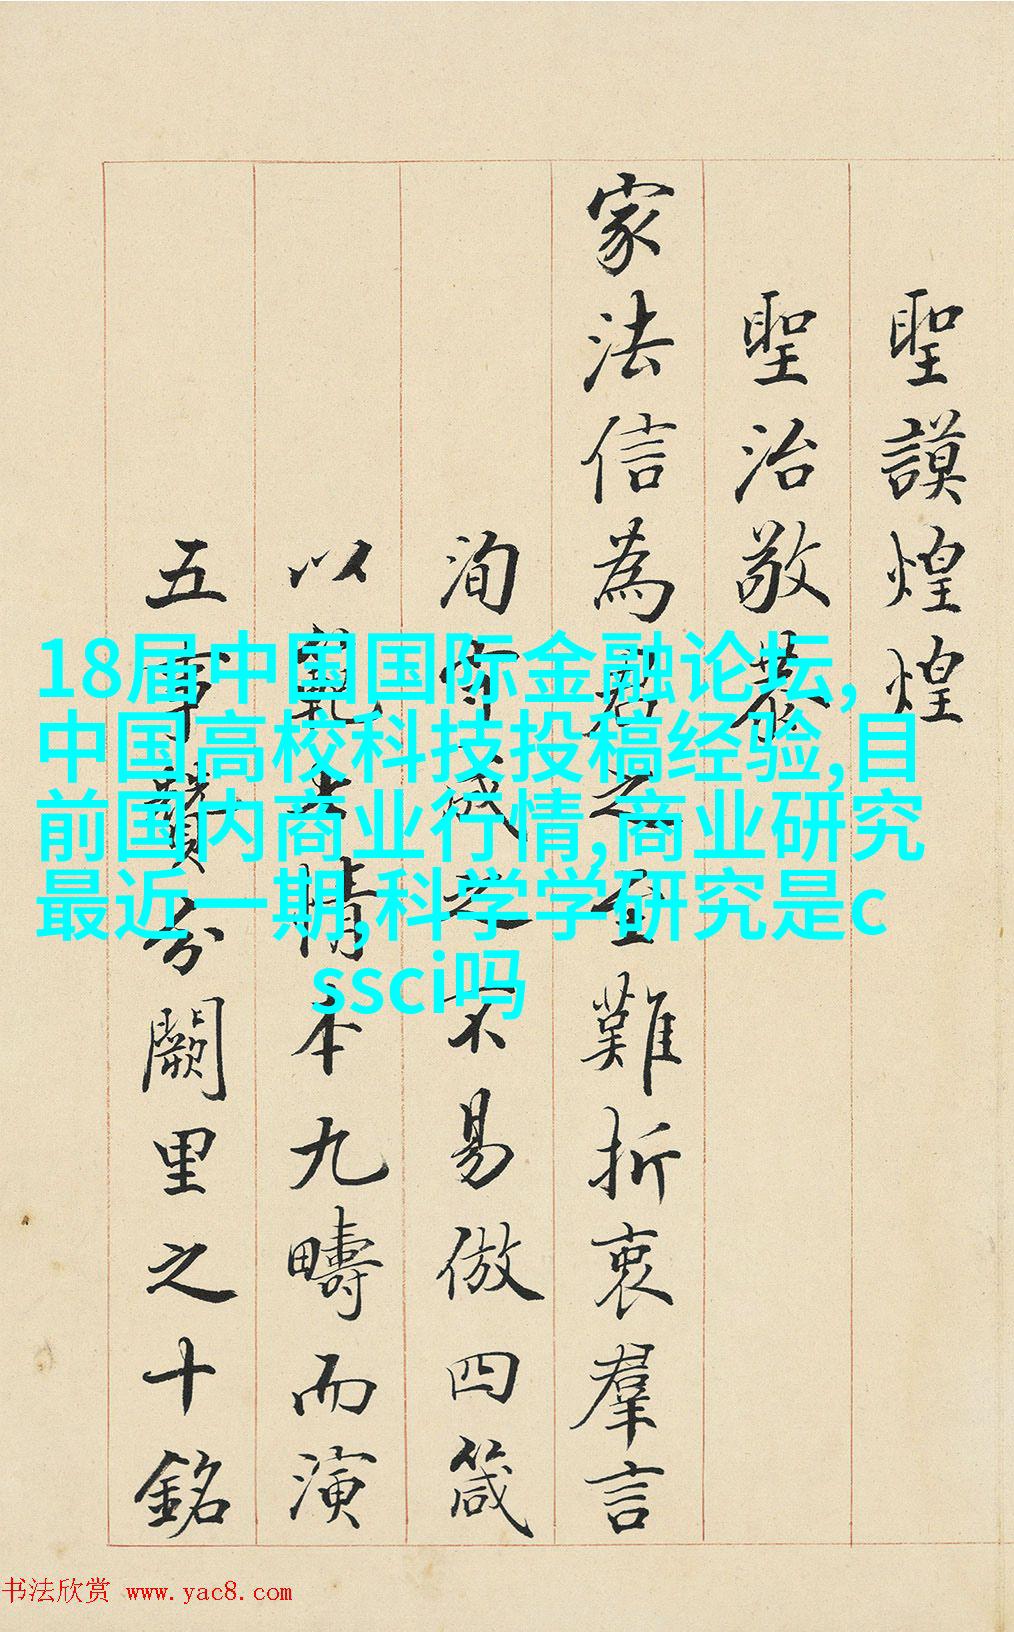 聖謨煌煌
聖治敬
家法信為君之至難折衷羣言
洵守成之不易倣四箴
以情本九疇而演
五事贊分闕里之十銘
18届中国国际金融论坛,
中国高校科技投稿经验,目
前国内商业行情,商业研究
最近一期,科学学研究是c
ssci吗
书法欣赏 www.yac8.com